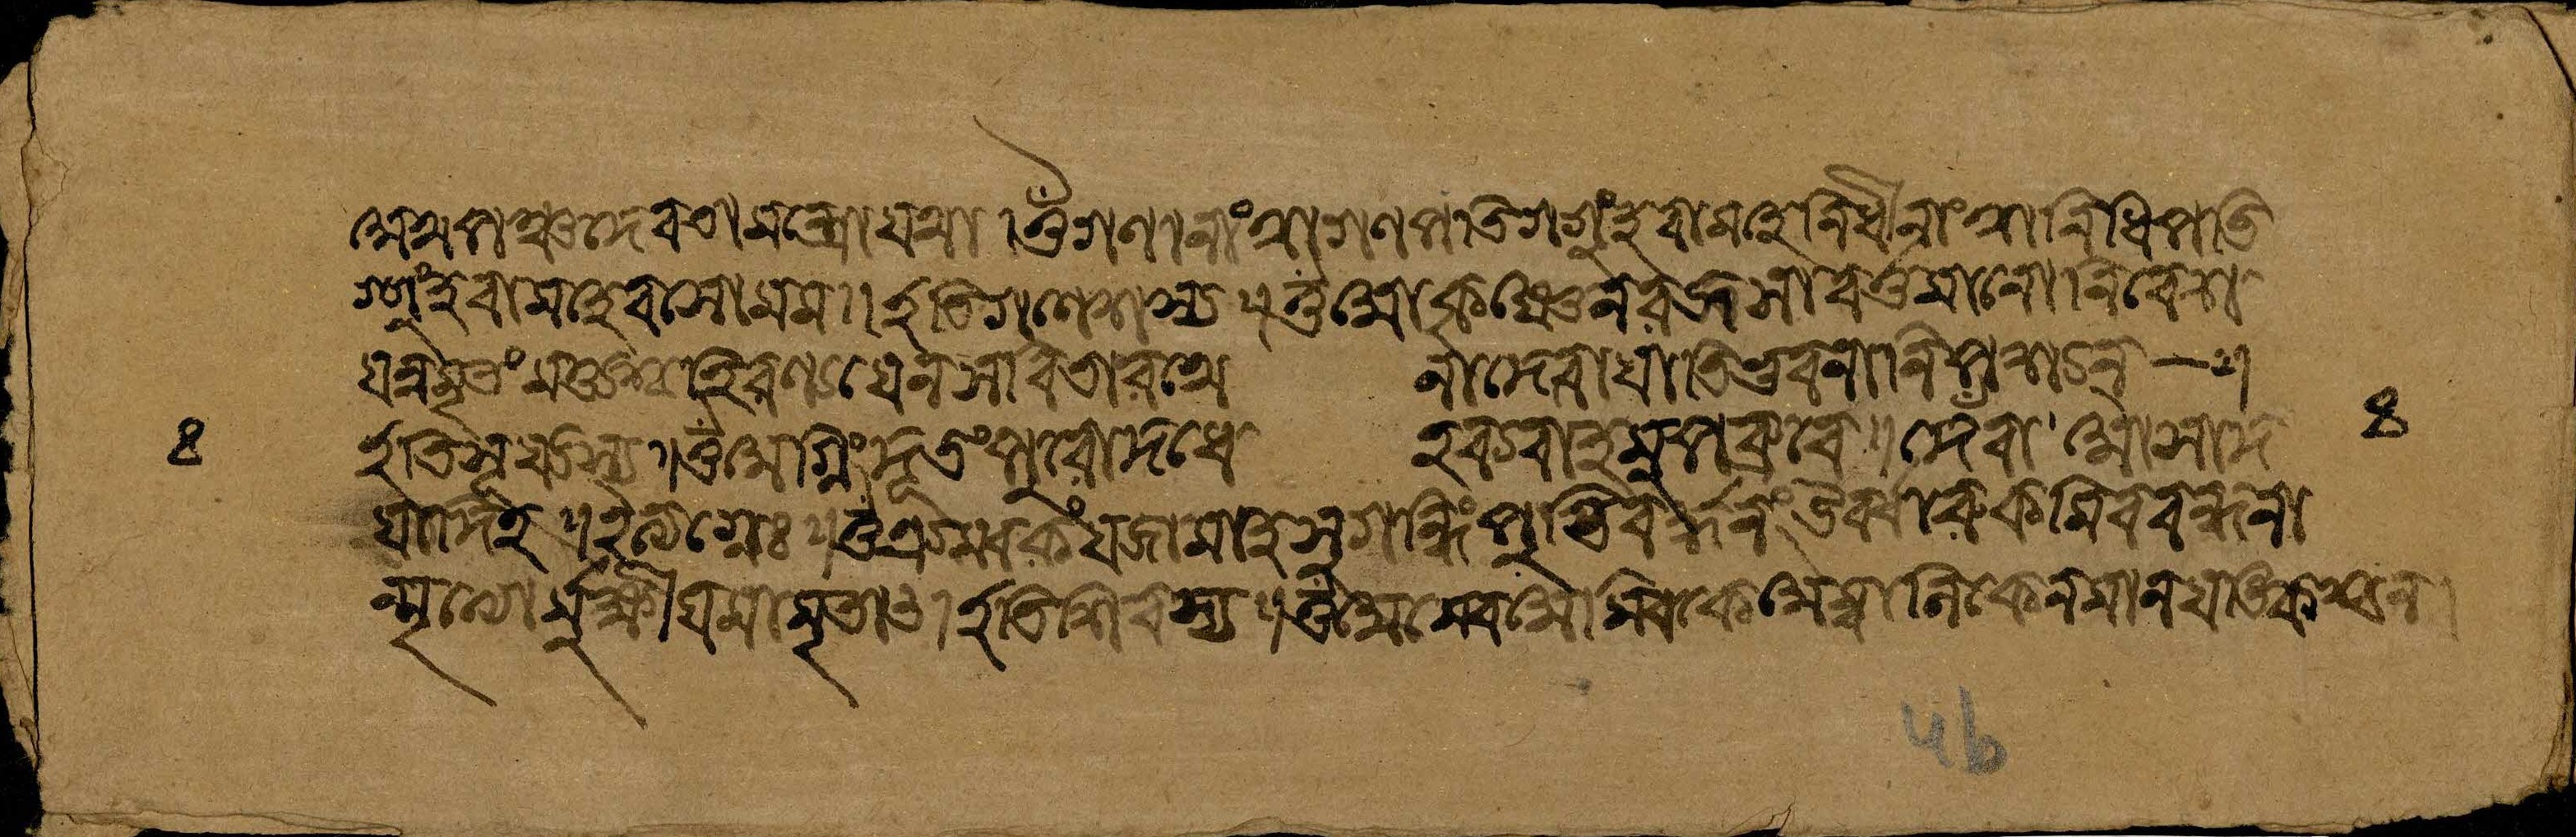 অথ পঞ্চদেবতামন্ত্রো যথা । ওঁ গণানাং ত্বা গণপতিগগুং হবামহে নিধীনাং ত্বা নিধিপতি
গগুং হবামহে বসো মম ॥ ইতি গণেশস্য ॥ ওঁ আকৃষ্ণেন রজসা বর্ত্তমানো নিবেশ
যন্নমৃতং মর্ত্ত্যঞ্চ হিরণ্যয়েন সবিতা রথে না দেবো যাতি ভুবনানি পশ্যন্ — ॥
ইতি সূর্যস্য ॥ ওঁ অগ্নিং দূতং পুরোদধে হব্যবাহমুপব্রুবে ॥ দেবাঁ আসাদ
যাদিহ ॥ ইত্যগ্নেঃ ॥ ওঁ ত্র্যম্বকং যজামহে সুগন্ধিং পুষ্টিবর্দ্ধনং উর্ব্বারুকমিব বন্ধনা
ন্মৃত্যোর্মুক্ষীয় মামৃতাৎ । ইতি শিবস্য ॥ ওঁ অম্বে অম্বিকে অম্বালিকে ন মা নয়তি কশ্চন ।
8
8
५६